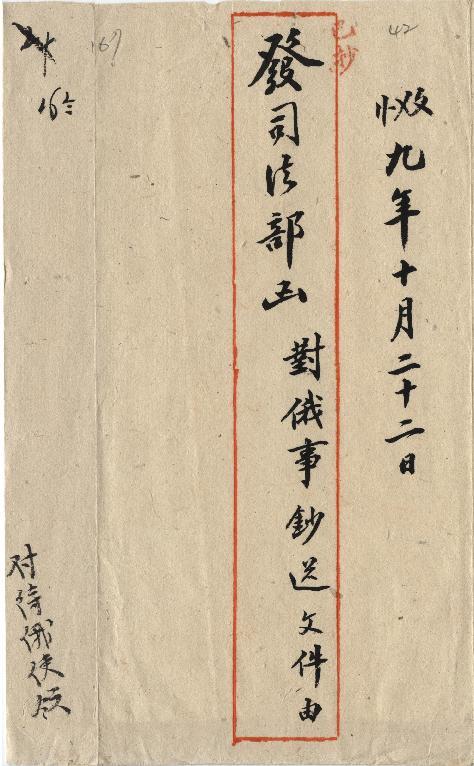 42
九年十月二十二日
已抄
發司法部函 對俄事鈔送文件由
169
对待俄使領